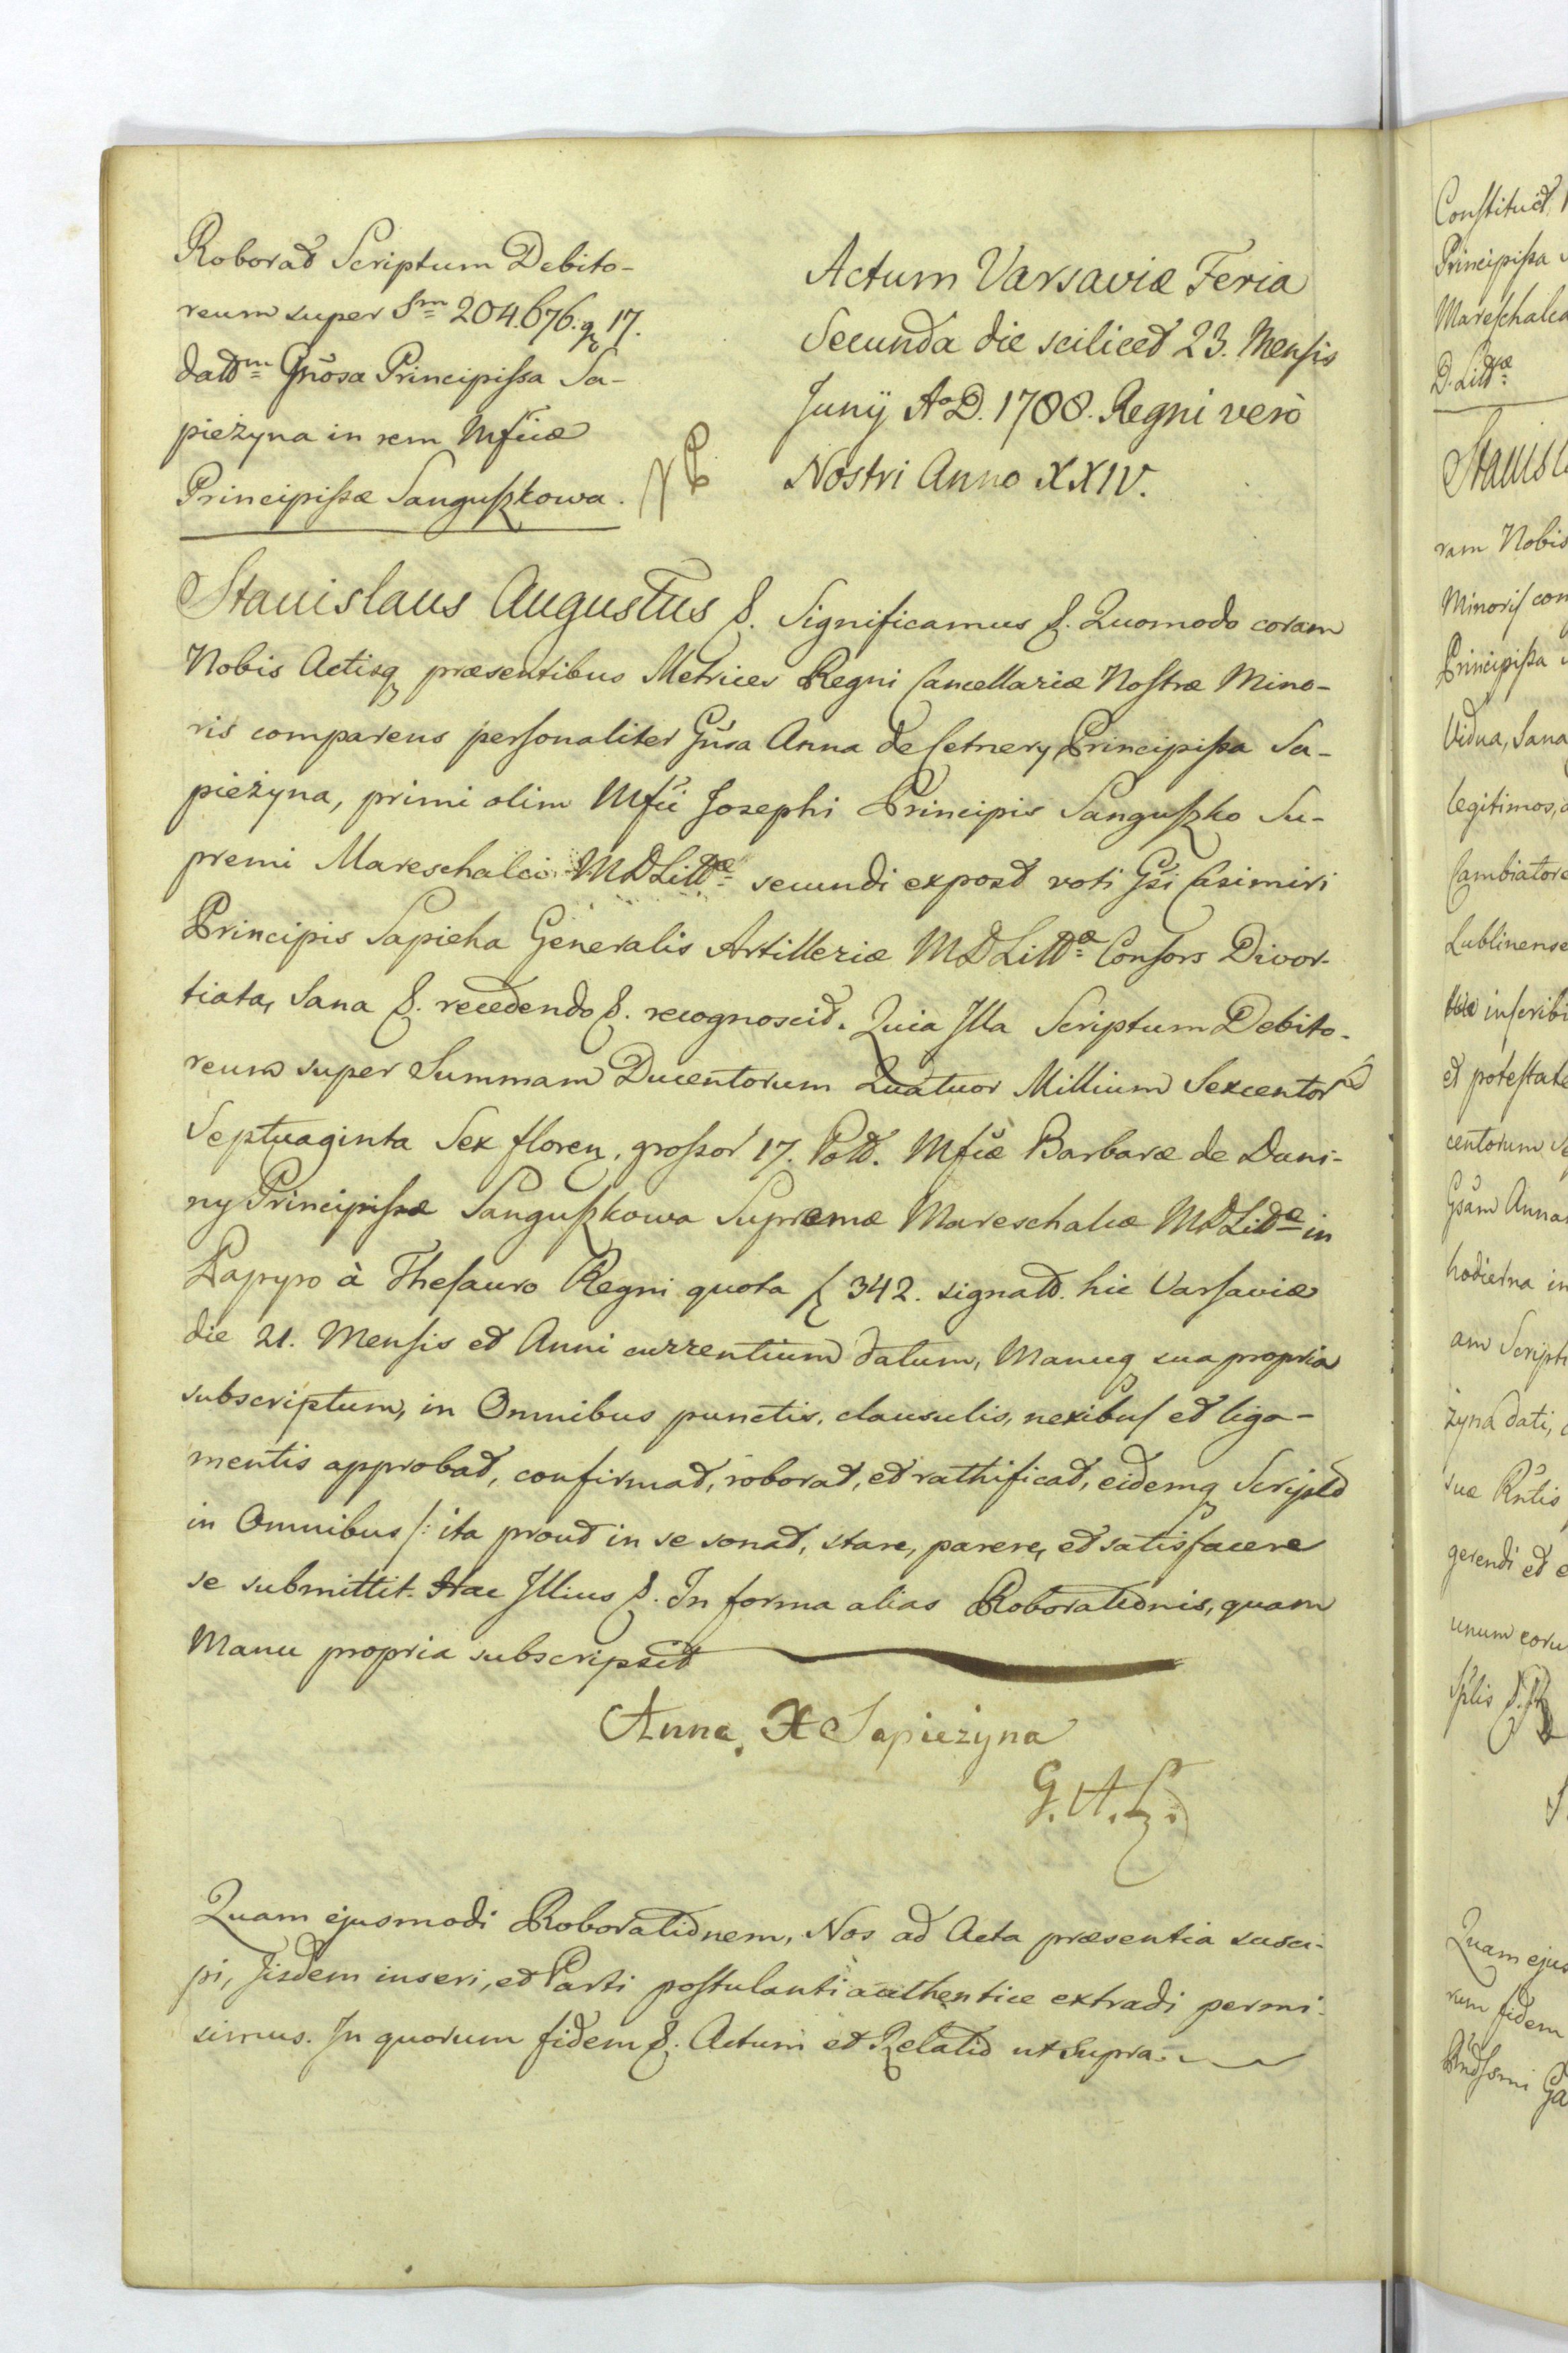 Roborat Scriptum Debito-
reum super Sm 204.676. gr 17.
dattm Gnosa Principissa Sa-
pieżyna in rem Mficæ
Principissæ Sanguszkowa.
Actum Varsaviæ Feria
Secunda die scilicet 23. Mensis
Junÿ Ao D. 1788. Regni verò
Nostri Anno XXIV.
Stanislaus Augustus &. Significamus &. Quomodo coram
Nobis Actisq præsentibus Metrices Regni Cancellariæ Nostræ Mino-
ris comparens personaliter Gnsa Anna de Cetnery Principissa Sa-
pieżyna, primi olim Mfci Josephi Principis Sanguszko Su-
premi Mareschalci MDLittæ secundi expost voti Gsi Casimiri
Principis Sapieha Generalis Artilleriæ MDLittæ Consors Divor-
tiata, Sana &. recedendo &. recognoscit. Quia Illa Scriptum Debito-
reum super Summam Ducentorum Quatuor Millium Sexcentor
Septuaginta Sex floren. grossor 17. Pott. Mficæ Barbaræ de Duni-
ny Principissæ Sanguszkowa Supremæ Mareschalcæ MDLittæ in
Papyro à Thesauro Regni quota f 342. signatt. hic Varsaviæ
die 21. Mensis et Anni currentium datum, Manuq sua propria
subscriptum, in Omnibus punctis, clausulis, nexibus et liga-
mentis approbat, confirmat, roborat, et rathificat, eidemq Scripto
in Omnibus /: ita prout in se sonat, stare, parere, et satisfacere
se submittit. Hac Illius &. In forma alias Roborationis, quam
Manu propria subscripsit
Anna X Sapieżyna
G. A. L.
Quam ejusmodi Roborationem, Nos ad Acta præsentia susci-
pi, Jisdem inseri, et Parti postulanti authentice extradi permi-
simus. In quorum fidem &. Actum et Relatio ut Supra.
Constituit
Principissa
Mareschalca
D. Littæ
Stanisl
ram Nobis
Minoris com
Principissa
Vidua, Sana
legitimos,
Cambiatore
Lublinense
inscribi
et potestate
centorum Se
Gsam Anna
hodierna in
am Script
żyna dati,
suæ Rntis
gerendi et
unum eoru
Splis
Quam ejus
rum fidem